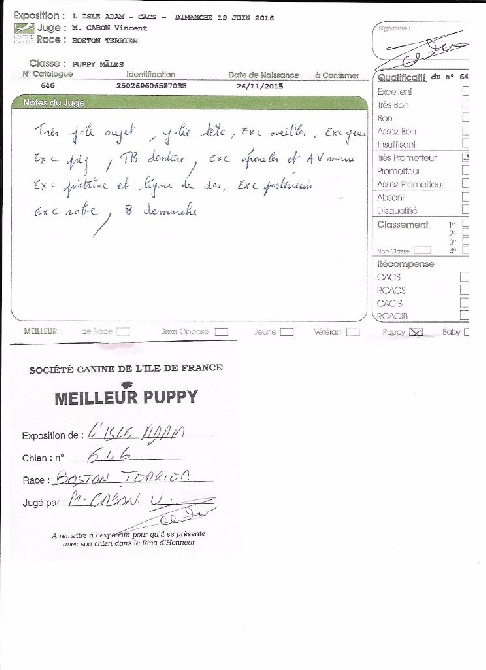 Exposition : L ISLE ADAM - CACS - DIMANCHE 19 JUIN 2016
Juge : M. CABON Vincent
Race : BOSTON TERRIER
Signature :
Classe : PUPPY MÂLES
N° Catalogue Identification Date de Naissance à Confirmer
646 250269606587035 26/11/2015
Qualificatif du n° 64
Notes du Juge
Très joli sujet, jolie tête, Exc oreilles, Exc yeux
Exc , TB denture, Exc épaules et AV mains
Exc poitrine et ligne de dos, Exc postérieurs
Exc robe, B démarche
Excellent
Très Bon
Bon
Assez Bon
Insuffisant
Très Prometteur
Prometteur
Assez Prometteur
Absent
Disqualifié
Classement 1°
2°
3°
Non Classé 4°
Récompense
CACS
RCACS
CACIB
RCACIB
MEILLEUR de Race Sexe Opposé Jeune Vétéran Puppy Baby
SOCIÉTÉ CANINE DE L'ILE DE FRANCE
MEILLEUR PUPPY
Exposition de : L'ISLE ADAM
Chien : n° 646
Race : BOSTON TERRIER
Jugé par M. CABON V.
A remettre à l'exposant pour qu'il se présente
avec son chien dans le Ring d'Honneur